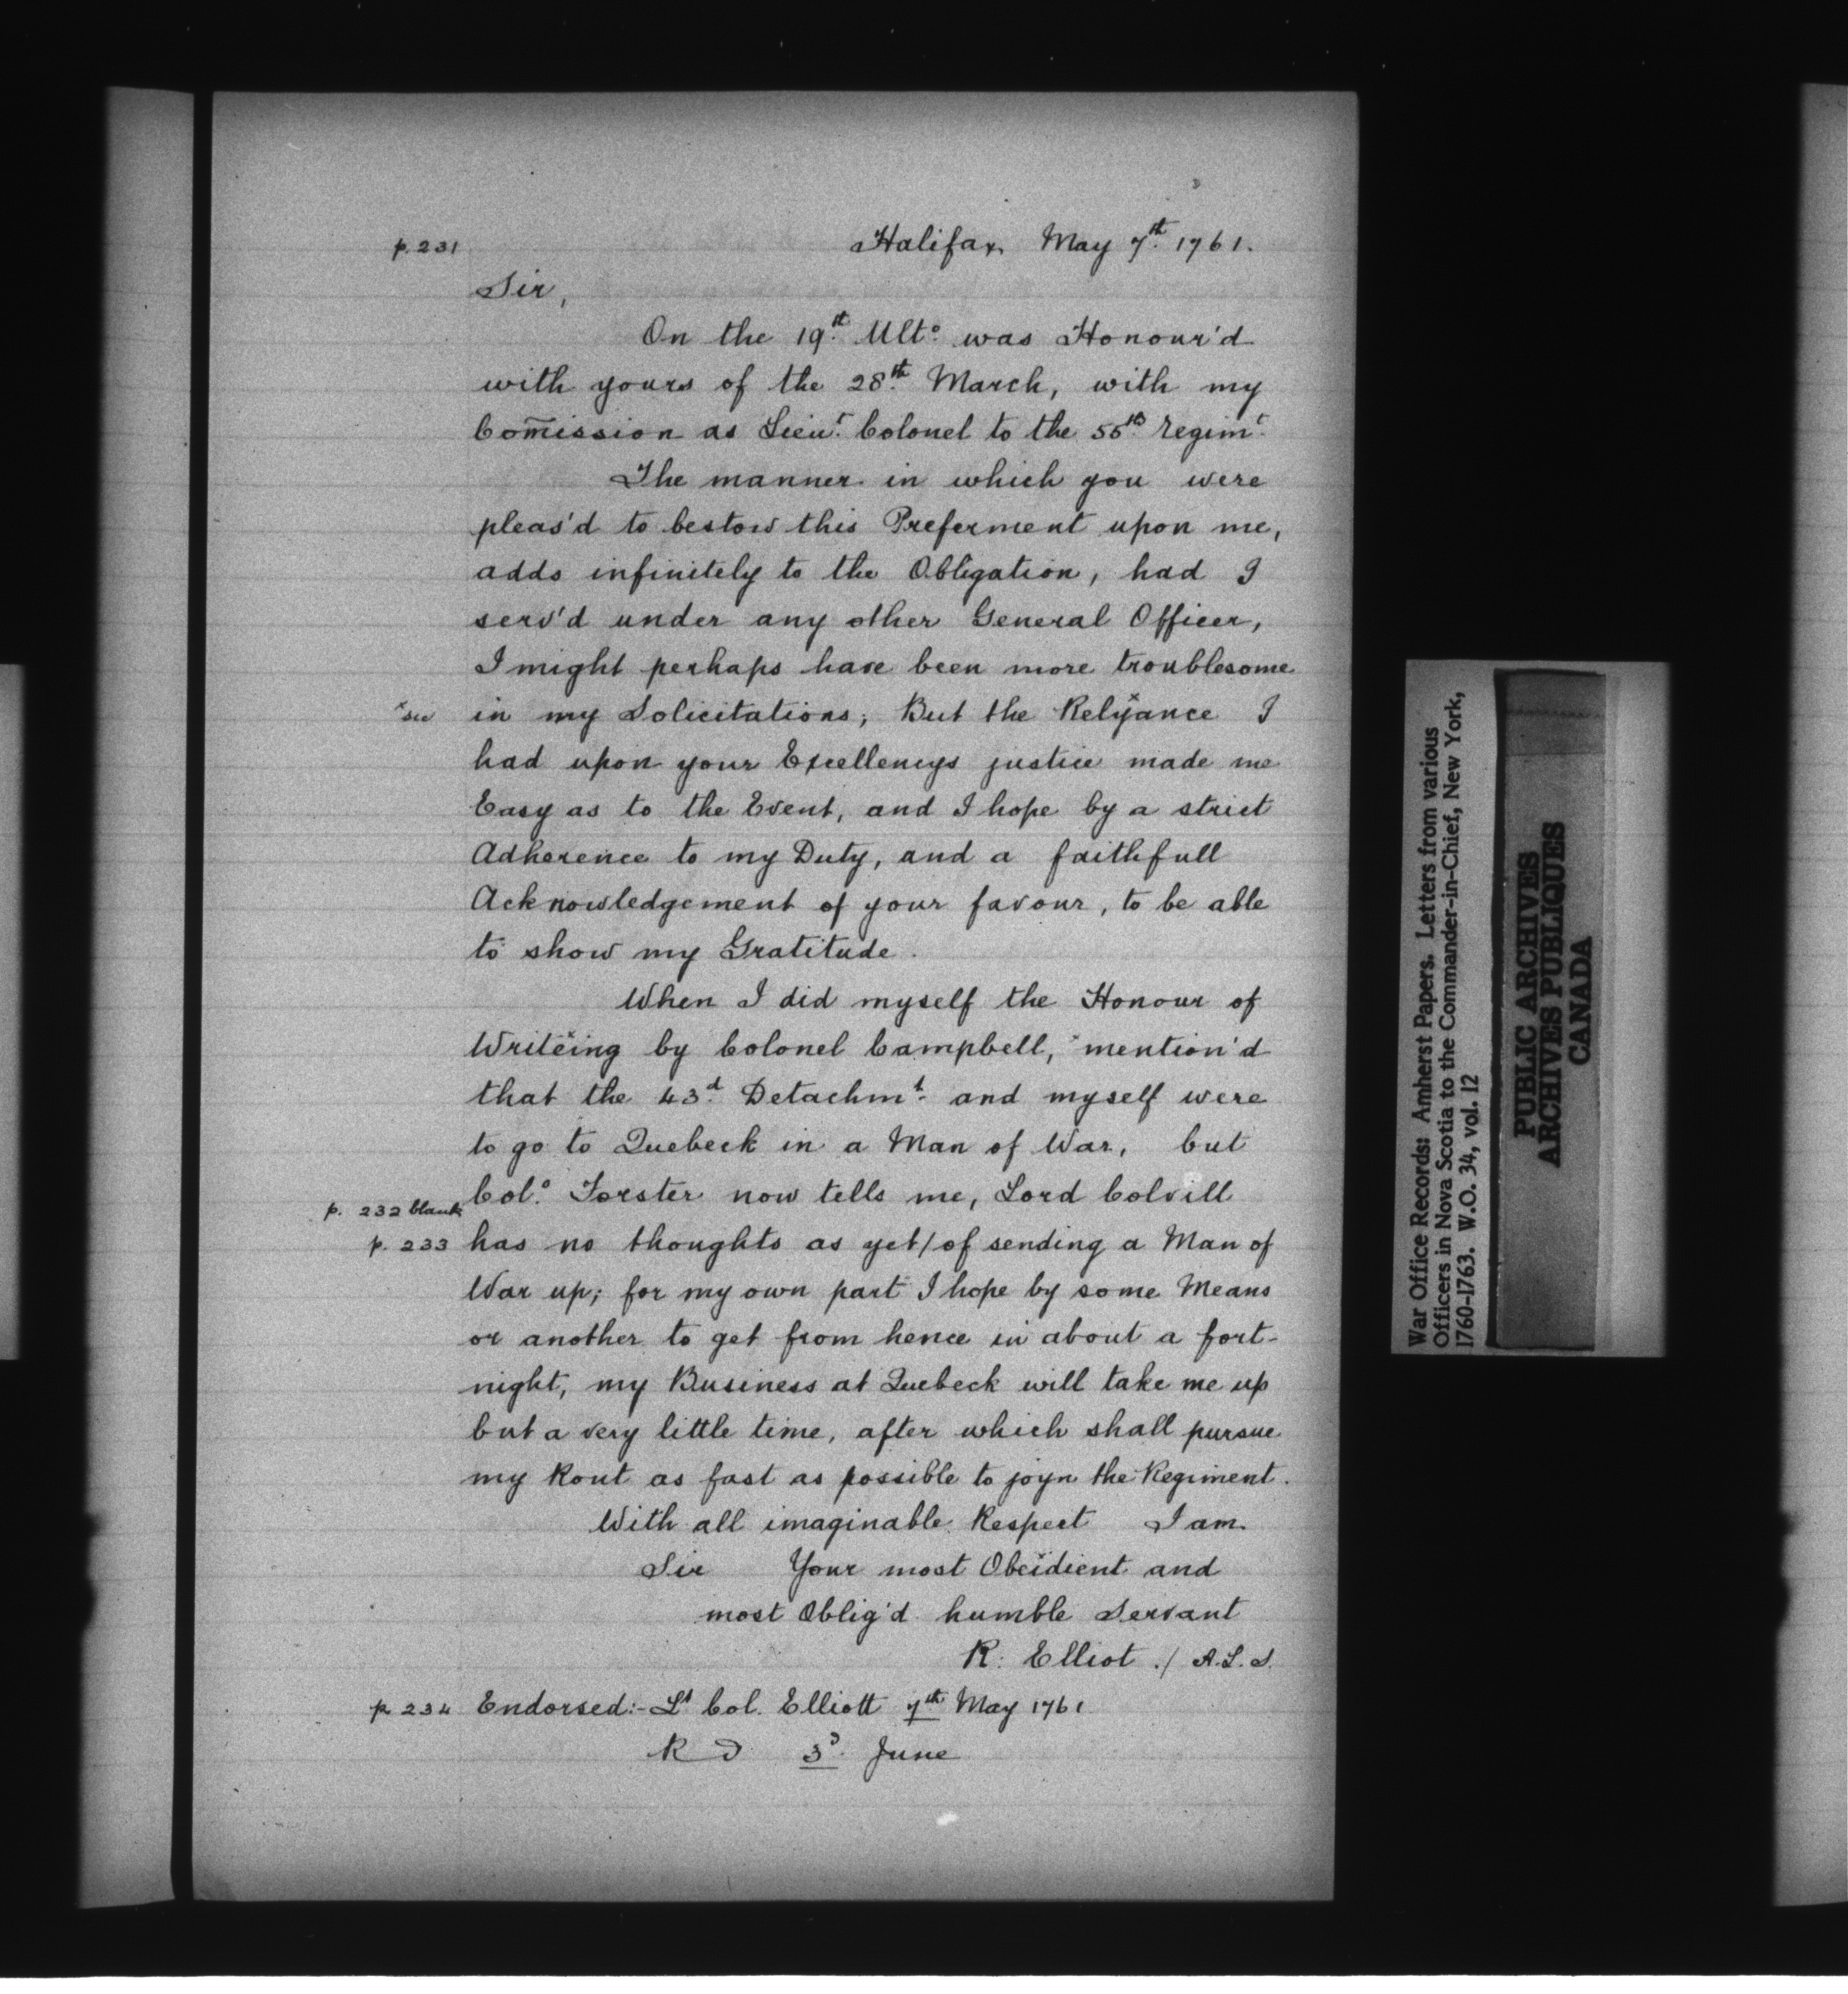 p. 231
Halifax, May 7th. 1761.
Sir,
On the 19th. Ulto. was Honour'd
with yours of the 28th. March, with my
Com̄ission as Lieut. Colonel to the 55th. regimt.
The manner in which you were
pleas'd to bestow this Preferment upon me,
adds infinitely to the Obligation, had I
serv'd under any other General Officer,
I might perhaps have been more troublesome
x sic in my Solicitations; But the Relyxance I
had upon your Excellencys justice made me
Easy as to the Event, and I hope by a strict
Adherence to my Duty, and a faithfull
Acknowledgement of your favour, to be able
to show my Gratitude.
When I did myself the Honour of
Writeing by Colonel Campbell, x mention'd
that the 43d. Detachmt. and myself were
to go to Quebeck in a Man of War, but
Colo. Forster now tells me, Lord Colvill
p. 232 blank
p. 233 has no thoughts as yet/of sending a Man of
War up; for my own part I hope by some Means
or another to get from hence in about a fort-
night, my Business at Quebeck will take me up
but a very little time, after which shall pursue
my Rout as fast as possible to joyn the Regiment.
With all imaginable Respect I am
Sir Your most Obeidient and
most Oblig'd humble Servant
R: Elliot ./ A.L.S.
p 234 Endorsed:- Lt Col. Elliott 7th May 1761
R D 3d. June
War Office Records: Amherst Papers. Letters from various
Officers in Nova Scotia to the Commander-in-Chief, New York,
1760-1763. W.O. 34, vol. 12
PUBLIC ARCHIVES
ARCHIVES PUBLIQUES
CANADA